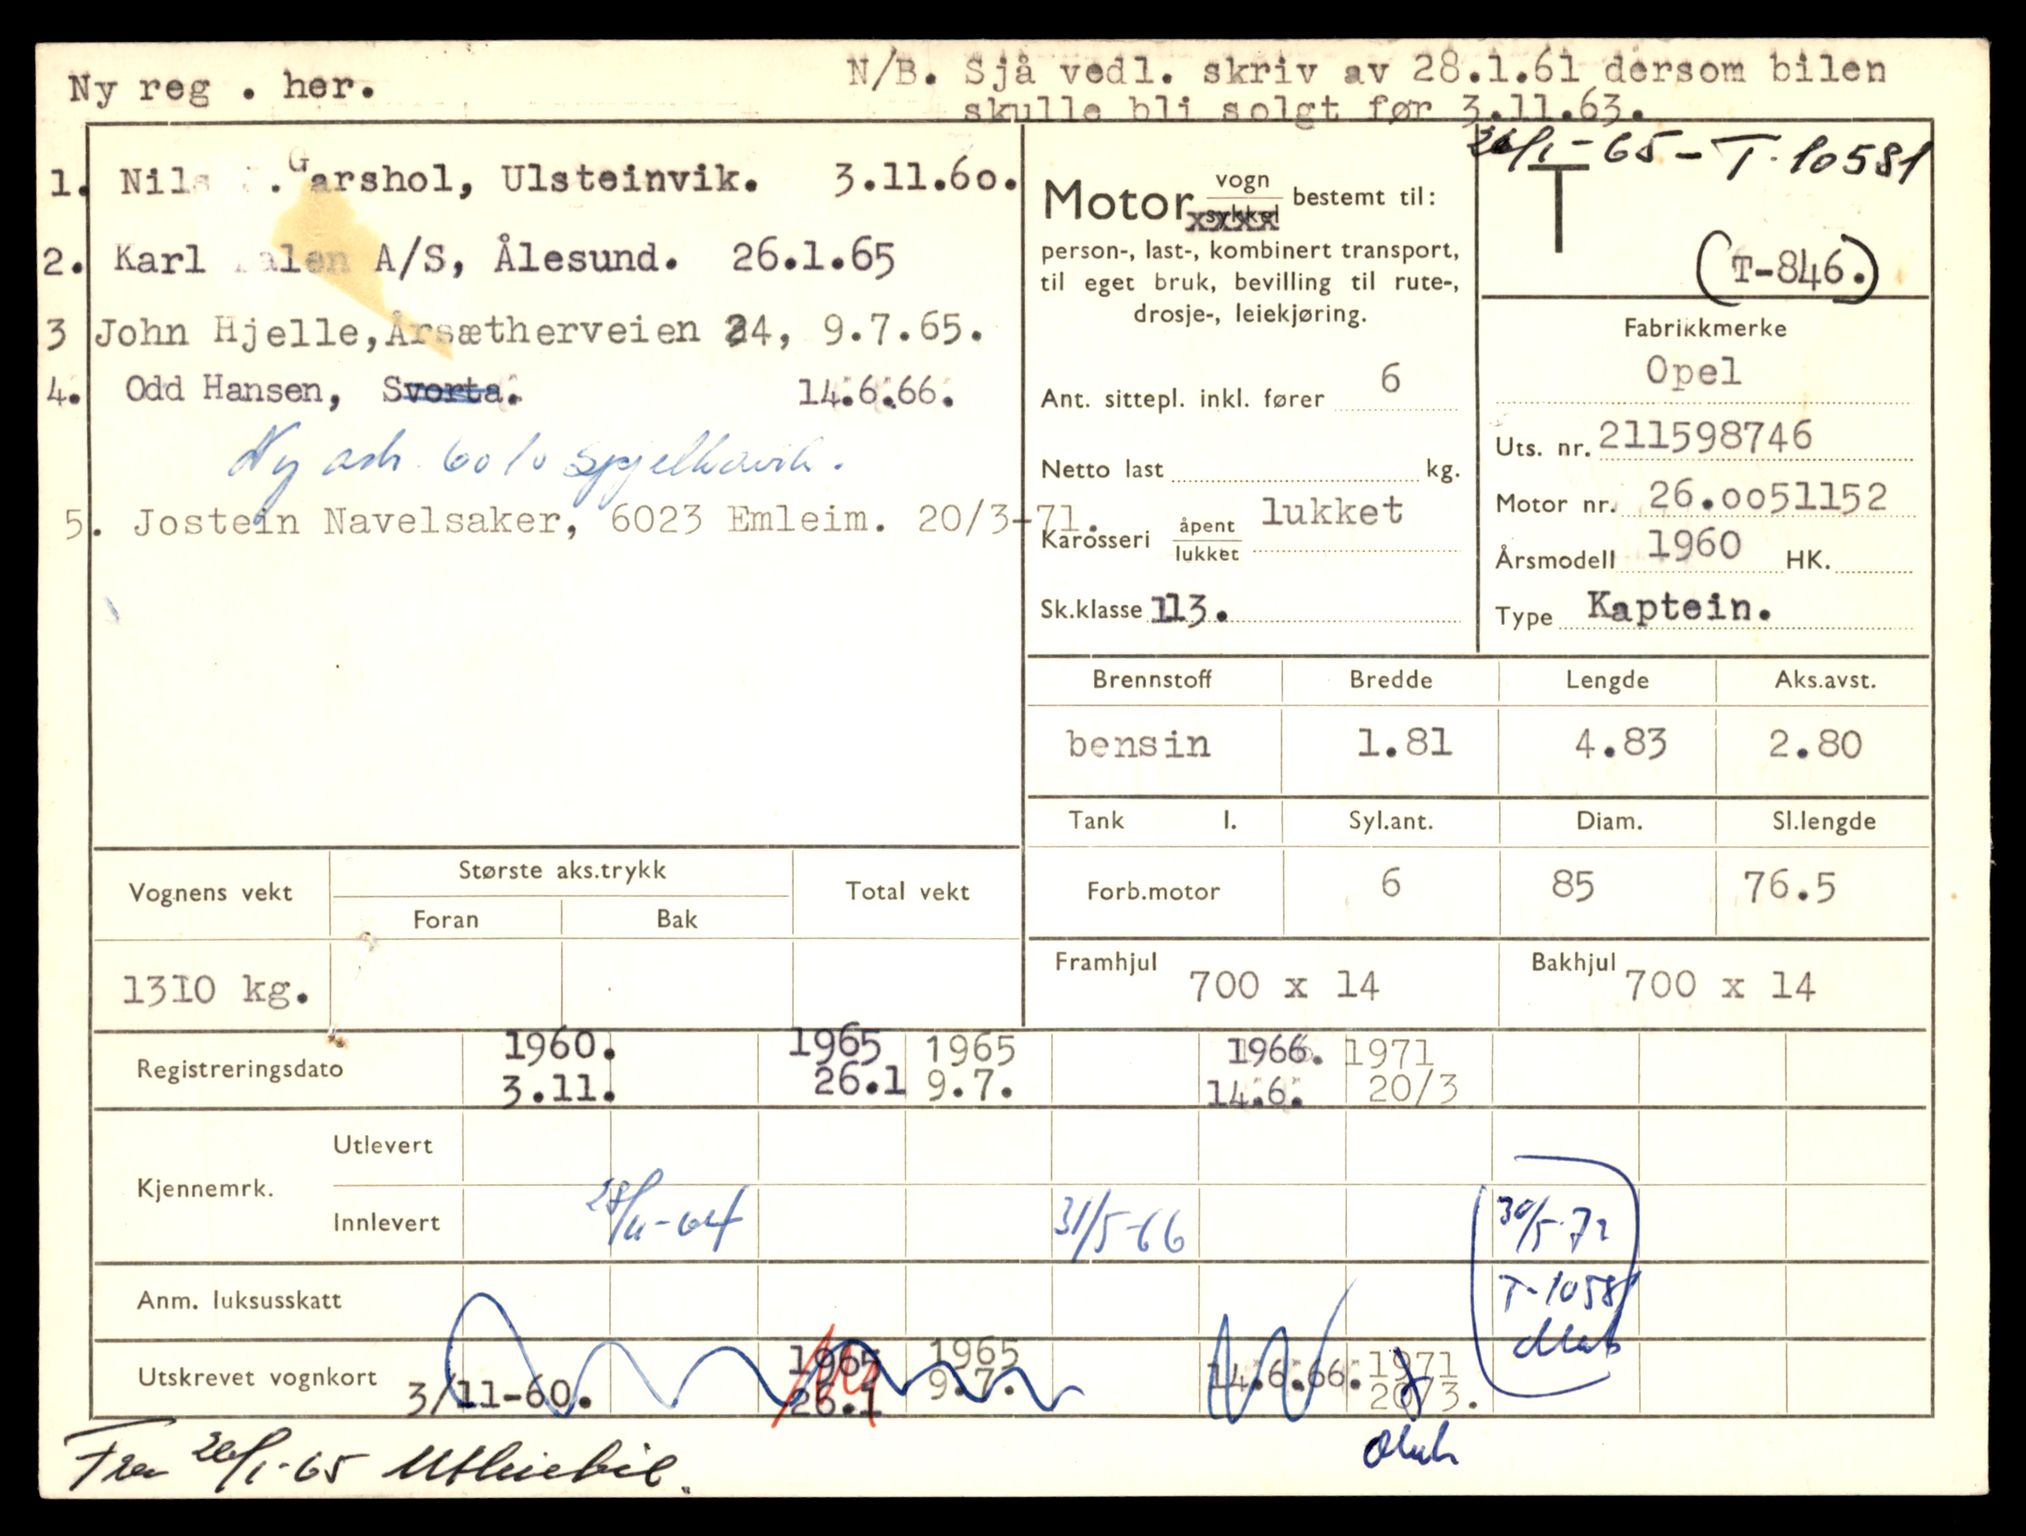 Ny reg . her.
N/B. Sjå vedl. skriv av 28.1.61 dersom bilen
skulle bli solgt før 3.11.63.
1. Nils . Garshol, Ulsteinvik. 3.11.60.
2. Karl A/S, Ålesund. 26.1.65
3 John Hjelle, Årsætherveien 24, 9.7.65.
4. Odd Hansen, Svorta. 14.6.66.
Ny adr. 6010 Spjelkavik.
5. Jostein Navelsaker, 6023 Emleim. 20/3-71.
Motor vogn
sykkel bestemt til:
person-, last-, kombinert transport,
til eget bruk, bevilling til rute-,
drosje-, leiekjøring.
Ant. sittepl. inkl. fører 6
Netto last kg.
Karosseri åpent
lukket lukket
Sk.klasse 113.
26/1-65-T-10581
T
(T-846.)
Fabrikkmerke
Opel
Uts. nr. 211598746
Motor nr. 26.0051152
Årsmodell 1960 HK.
Type Kaptein.
Brennstoff Bredde Lengde Aks.avst.
bensin 1.81 4.83 2.80
Tank l. Syl.ant. Diam. Sl.lengde
Forb.motor 6 85 76.5
Framhjul 700 x 14 Bakhjul 700 x 14
Vognens vekt Største aks.trykk Total vekt
Foran Bak
1310 kg.
Registreringsdato 1960. 1965 1965 1966. 1971
3.11. 26.1 9.7. 14.6. 20/3
Kjennemrk. Utlevert
Innlevert 28/11-64 31/5-66 30/5-72
Anm. luksusskatt T-10581
Utskrevet vognkort 3/11-60. 1965 1965 14.6.66. 1971
26.1 9.7. 20/3.
Fra 26/1-65 Utleiebil.